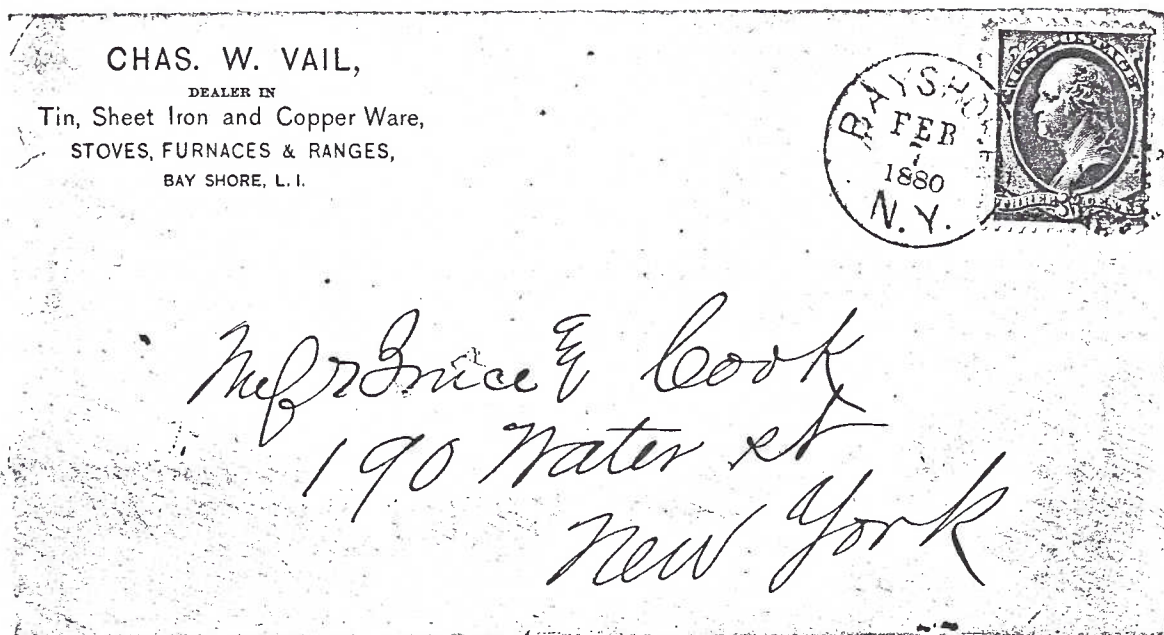 CHAS. W. VAIL,
DEALER IN
Tin, Sheet Iron and Copper Ware,
STOVES, FURNACES & RANGES,
BAY SHORE, L. I.
BAYSHORE
FEB
7
1880
N.Y.
U.S. POSTAGE
THREE 3 CENTS
Messrs Bruce & Cook
190 Water st
New York